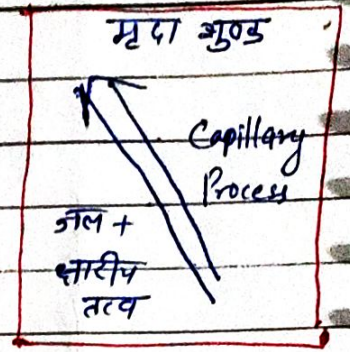 मृदा मुण्ड
Capillary
Process
जल +
क्षारीय
तत्व